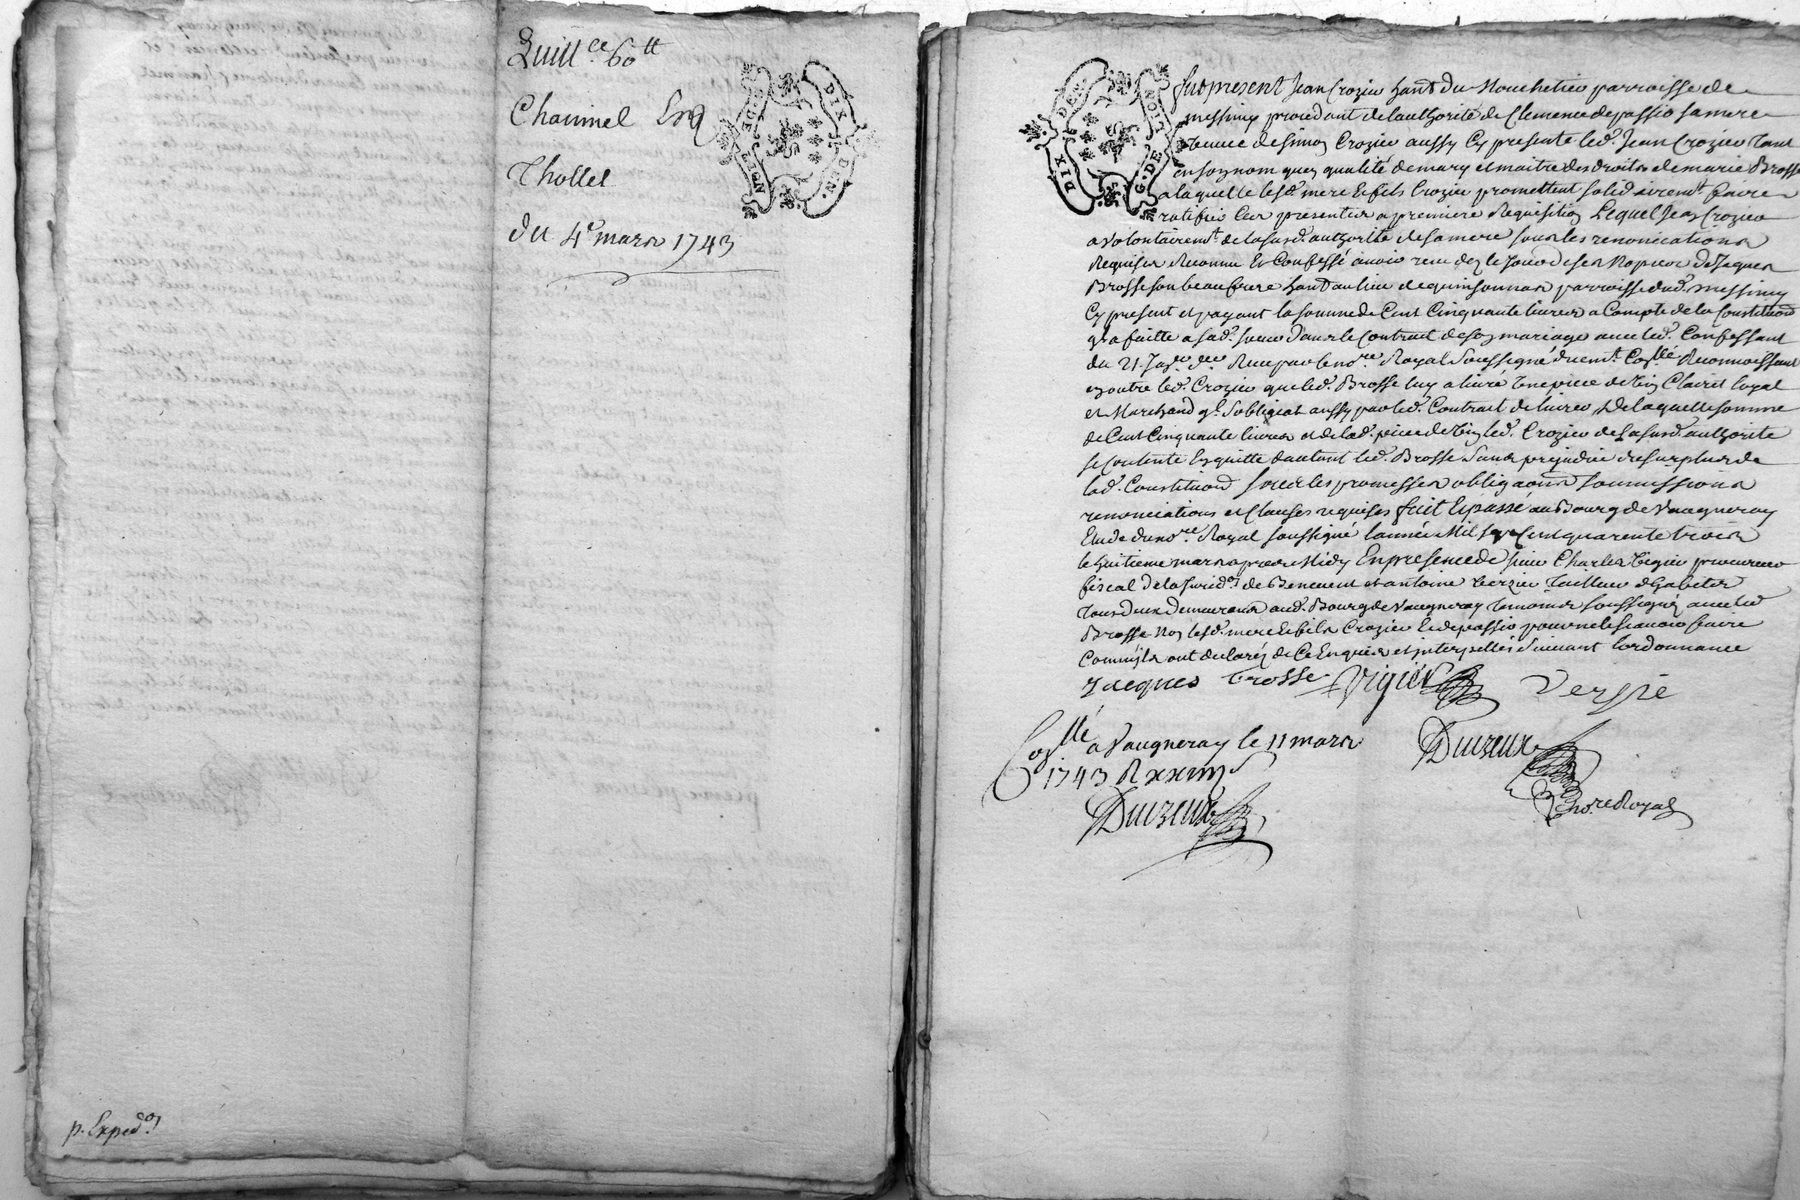 Quitt.ce 60 tt
Chaumel
Thollet
du 4e mars 1743
p. Exped.on
DIX DEN.
G. DE LION
DIX DEN.
G. DE LION
fut present Jean Crozier habt du parroisse de
messimy procedant de lauthorité de Clemence depassio sa mere
veuve de simon Crozier aussy Cy presente led. Jean Crozier tant
en son nom quen qualité de mary et maitre des droits de marie Brosse
a laquelle lesd. mere et fils Crozier promettent solidairemt. faire
ratifier Ces presentes a premiere Requisition Lequel Jean Crozier
a volontairemt. de la susd. authorité de sa mere sous les renonciations
Requises Reconnu et Confessé avoir receu de Jacques
Brosse son beaufrere habt au lieu de quinsonnas parroisse dud. messimy
Cy present et payant la somme de Cent Cinquante livres a Compte de la Constitution
ql a faitte a sad. soeur dans le Contrat de son mariage avec led. Confessant
du 21. Receu par le nore. Royal soussigné duemt. Conllé Reconnoissant
en outre led. Crozier que led. Brosse luy a livré une piece de vin Clairet loyal
et Marchand ql. sobligeat aussy par led. Contrat de livrer de laquelle somme
de Cent Cinquante livres et de lad. piece de vin led. Crozier de la susd. authorité
se Contente en quitte dautant led. Brosse sans prejudice du surplus de
lad. Constitution sous les promesses obligaons soumissions
renonciations et Clauses requises fait et passé au Bourg de Vaugneray
Etude du nore. Royal soussigné lannée Mil sept Cent quarente trois
le huitieme mars apres Midy En presence de sieur Charles Vigier procureur
fiscal de la Jurid.on de Benevent et antoine Verzier Tailleur dhabits
tous deux demeurans aud. Bourg de Vaugneray temoins soussignés avec led.
Brosse non lesd. mere et fils Crozier et depassio pour ne le sçavoir faire
Comm'ils ont declaré de Ce Enquis et interpellés suivant lordonnance
Jacques brosse Vigier Versie
Conllé a Vaugneray le 11 mars
1743 R xxiiij s
Duizeux
Duizeux
nore Royal